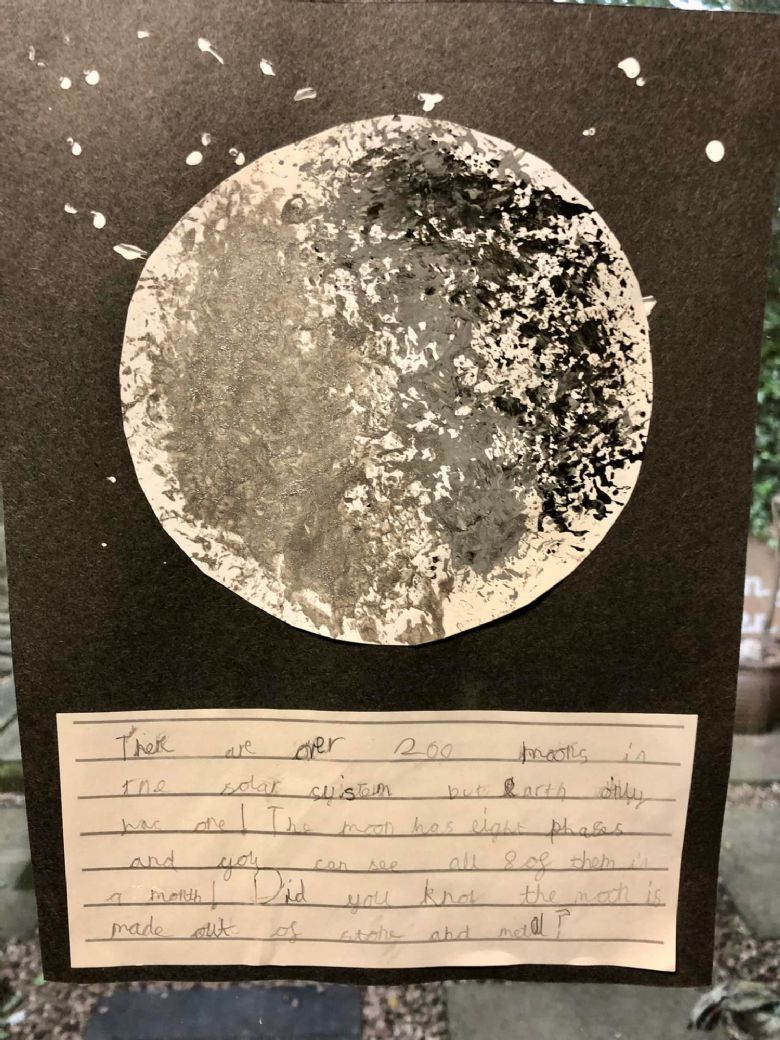 There are over 200 moons in
the solar syistem but Earth only
has one! The moon has eight phases
and you can see all 8 of them in
a month! Did you know the moon is
made out of stone and metal?